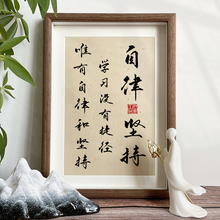 自律坚持
学习没有捷径
唯有自律和坚持